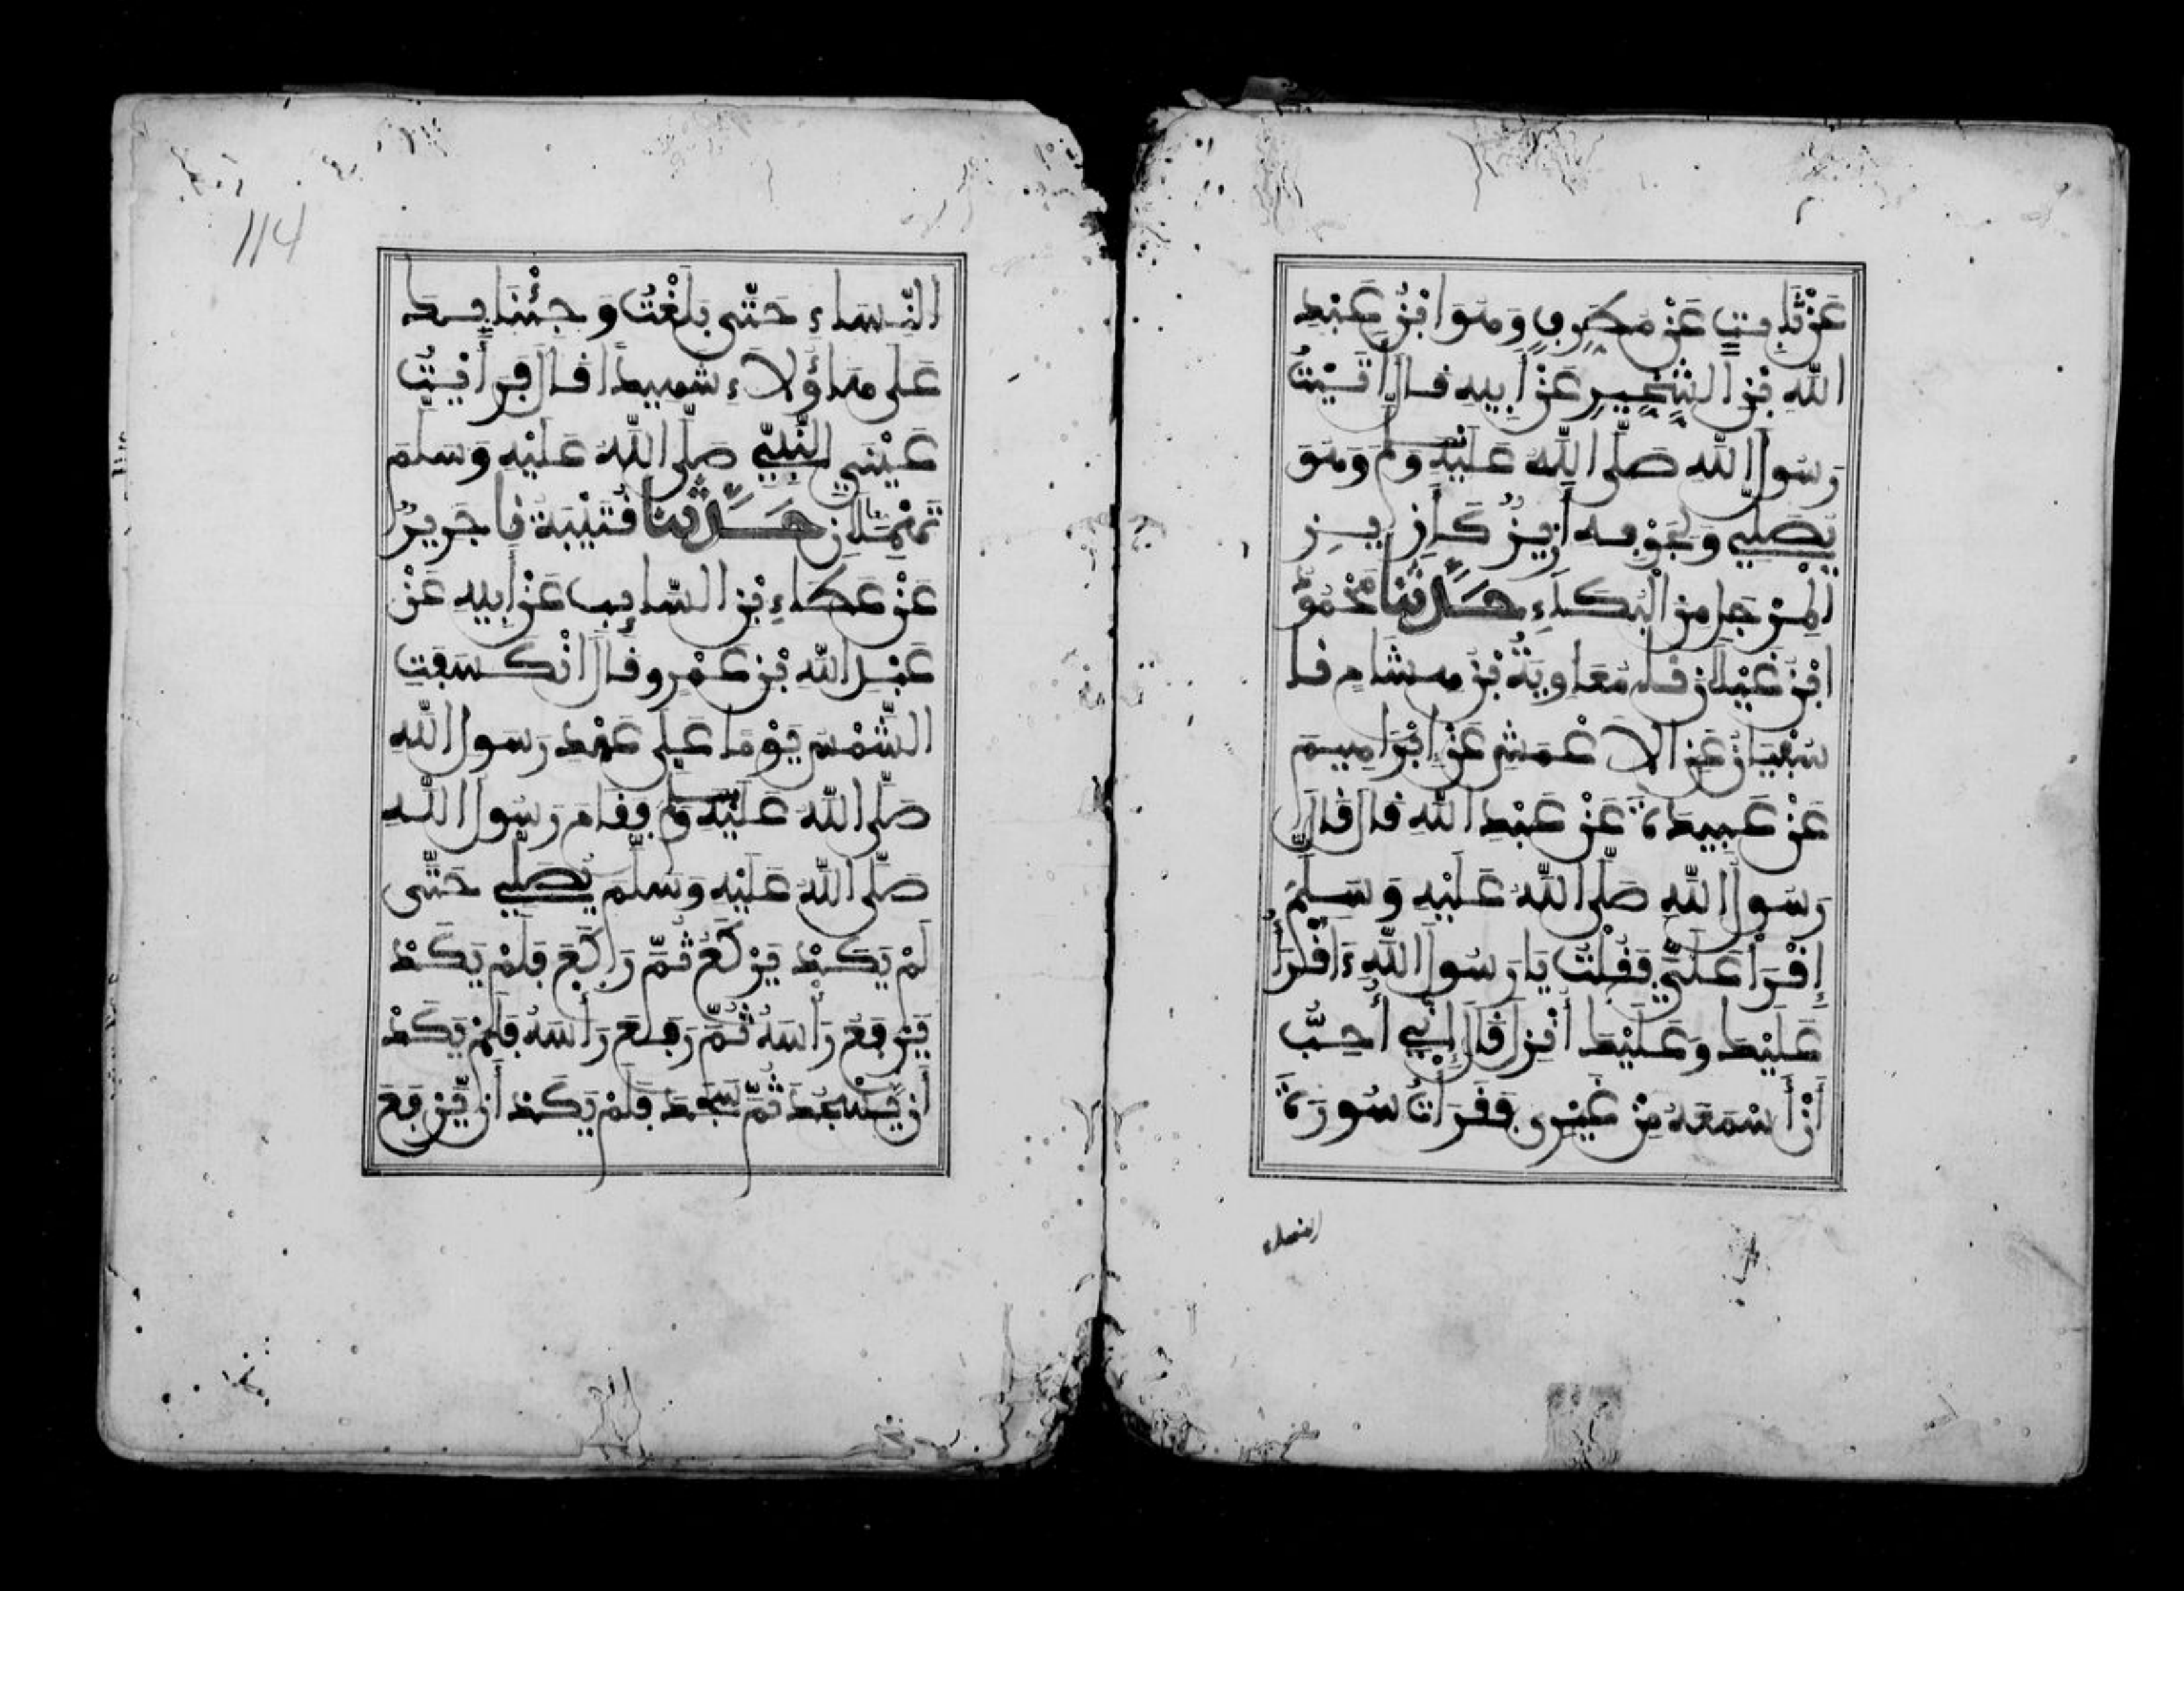 عَنْ ثَابِتٍ عَنْ مُطَرِّفٍ وَهُوَ ابْنُ عَبْدِ
اللهِ بْنِ الشِّخِّيرِ عَنْ أَبِيهِ قَالَ أَتَيْتُ
رَسُولَ اللهِ صَلَّى اللهُ عَلَيْهِ وَسَلَّمَ وَهُوَ
يُصَلِّي وَلِجَوْفِهِ أَزِيزٌ كَأَزِيزِ
الْمِرْجَلِ مِنَ الْبُكَاءِ حَدَّثَنَا مَحْمُودُ
ابْنُ غَيْلَانَ نَا مُعَاوِيَةُ بْنُ هِشَامٍ نَا
سُفْيَانُ عَنِ الْأَعْمَشِ عَنْ إِبْرَاهِيمَ
عَنْ عَبِيدَةَ عَنْ عَبْدِ اللهِ قَالَ قَالَ لِي
رَسُولُ اللهِ صَلَّى اللهُ عَلَيْهِ وَسَلَّمَ
إِقْرَأْ عَلَيَّ فَقُلْتُ يَا رَسُولَ اللهِ ءَاقْرَأُ
عَلَيْكَ وَعَلَيْكَ أُنْزِلَ قَالَ إِنِّي أُحِبُّ
أَنْ أَسْمَعَهُ مِنْ غَيْرِي فَقَرَأْتُ سُورَةَ
النساء
114
النِّسَاءِ حَتَّى بَلَغْتُ وَجِئْنَا بِكَ
عَلَى هَؤُلَاءِ شَهِيدًا قَالَ فَرَأَيْتُ
عَيْنَيِ النَّبِيِّ صَلَّى اللهُ عَلَيْهِ وَسَلَّمَ
تَهْمِلَانِ حَدَّثَنَا قُتَيْبَةُ نَا جَرِيرٌ
عَنْ عَطَاءِ بْنِ السَّائِبِ عَنْ أَبِيهِ عَنْ
عَبْدِ اللهِ بْنِ عَمْرٍو قَالَ انْكَسَفَتِ
الشَّمْسُ يَوْمًا عَلَى عَهْدِ رَسُولِ اللهِ
صَلَّى اللهُ عَلَيْهِ وَسَلَّمَ فَقَامَ رَسُولُ اللهِ
صَلَّى اللهُ عَلَيْهِ وَسَلَّمَ يُصَلِّي حَتَّى
لَمْ يَكَدْ يَرْكَعُ ثُمَّ رَكَعَ فَلَمْ يَكَدْ
يَرْفَعُ رَأْسَهُ ثُمَّ رَفَعَ رَأْسَهُ فَلَمْ يَكَدْ
أَنْ يَسْجُدَ ثُمَّ سَجَدَ فَلَمْ يَكَدْ أَنْ يَرْفَعَ